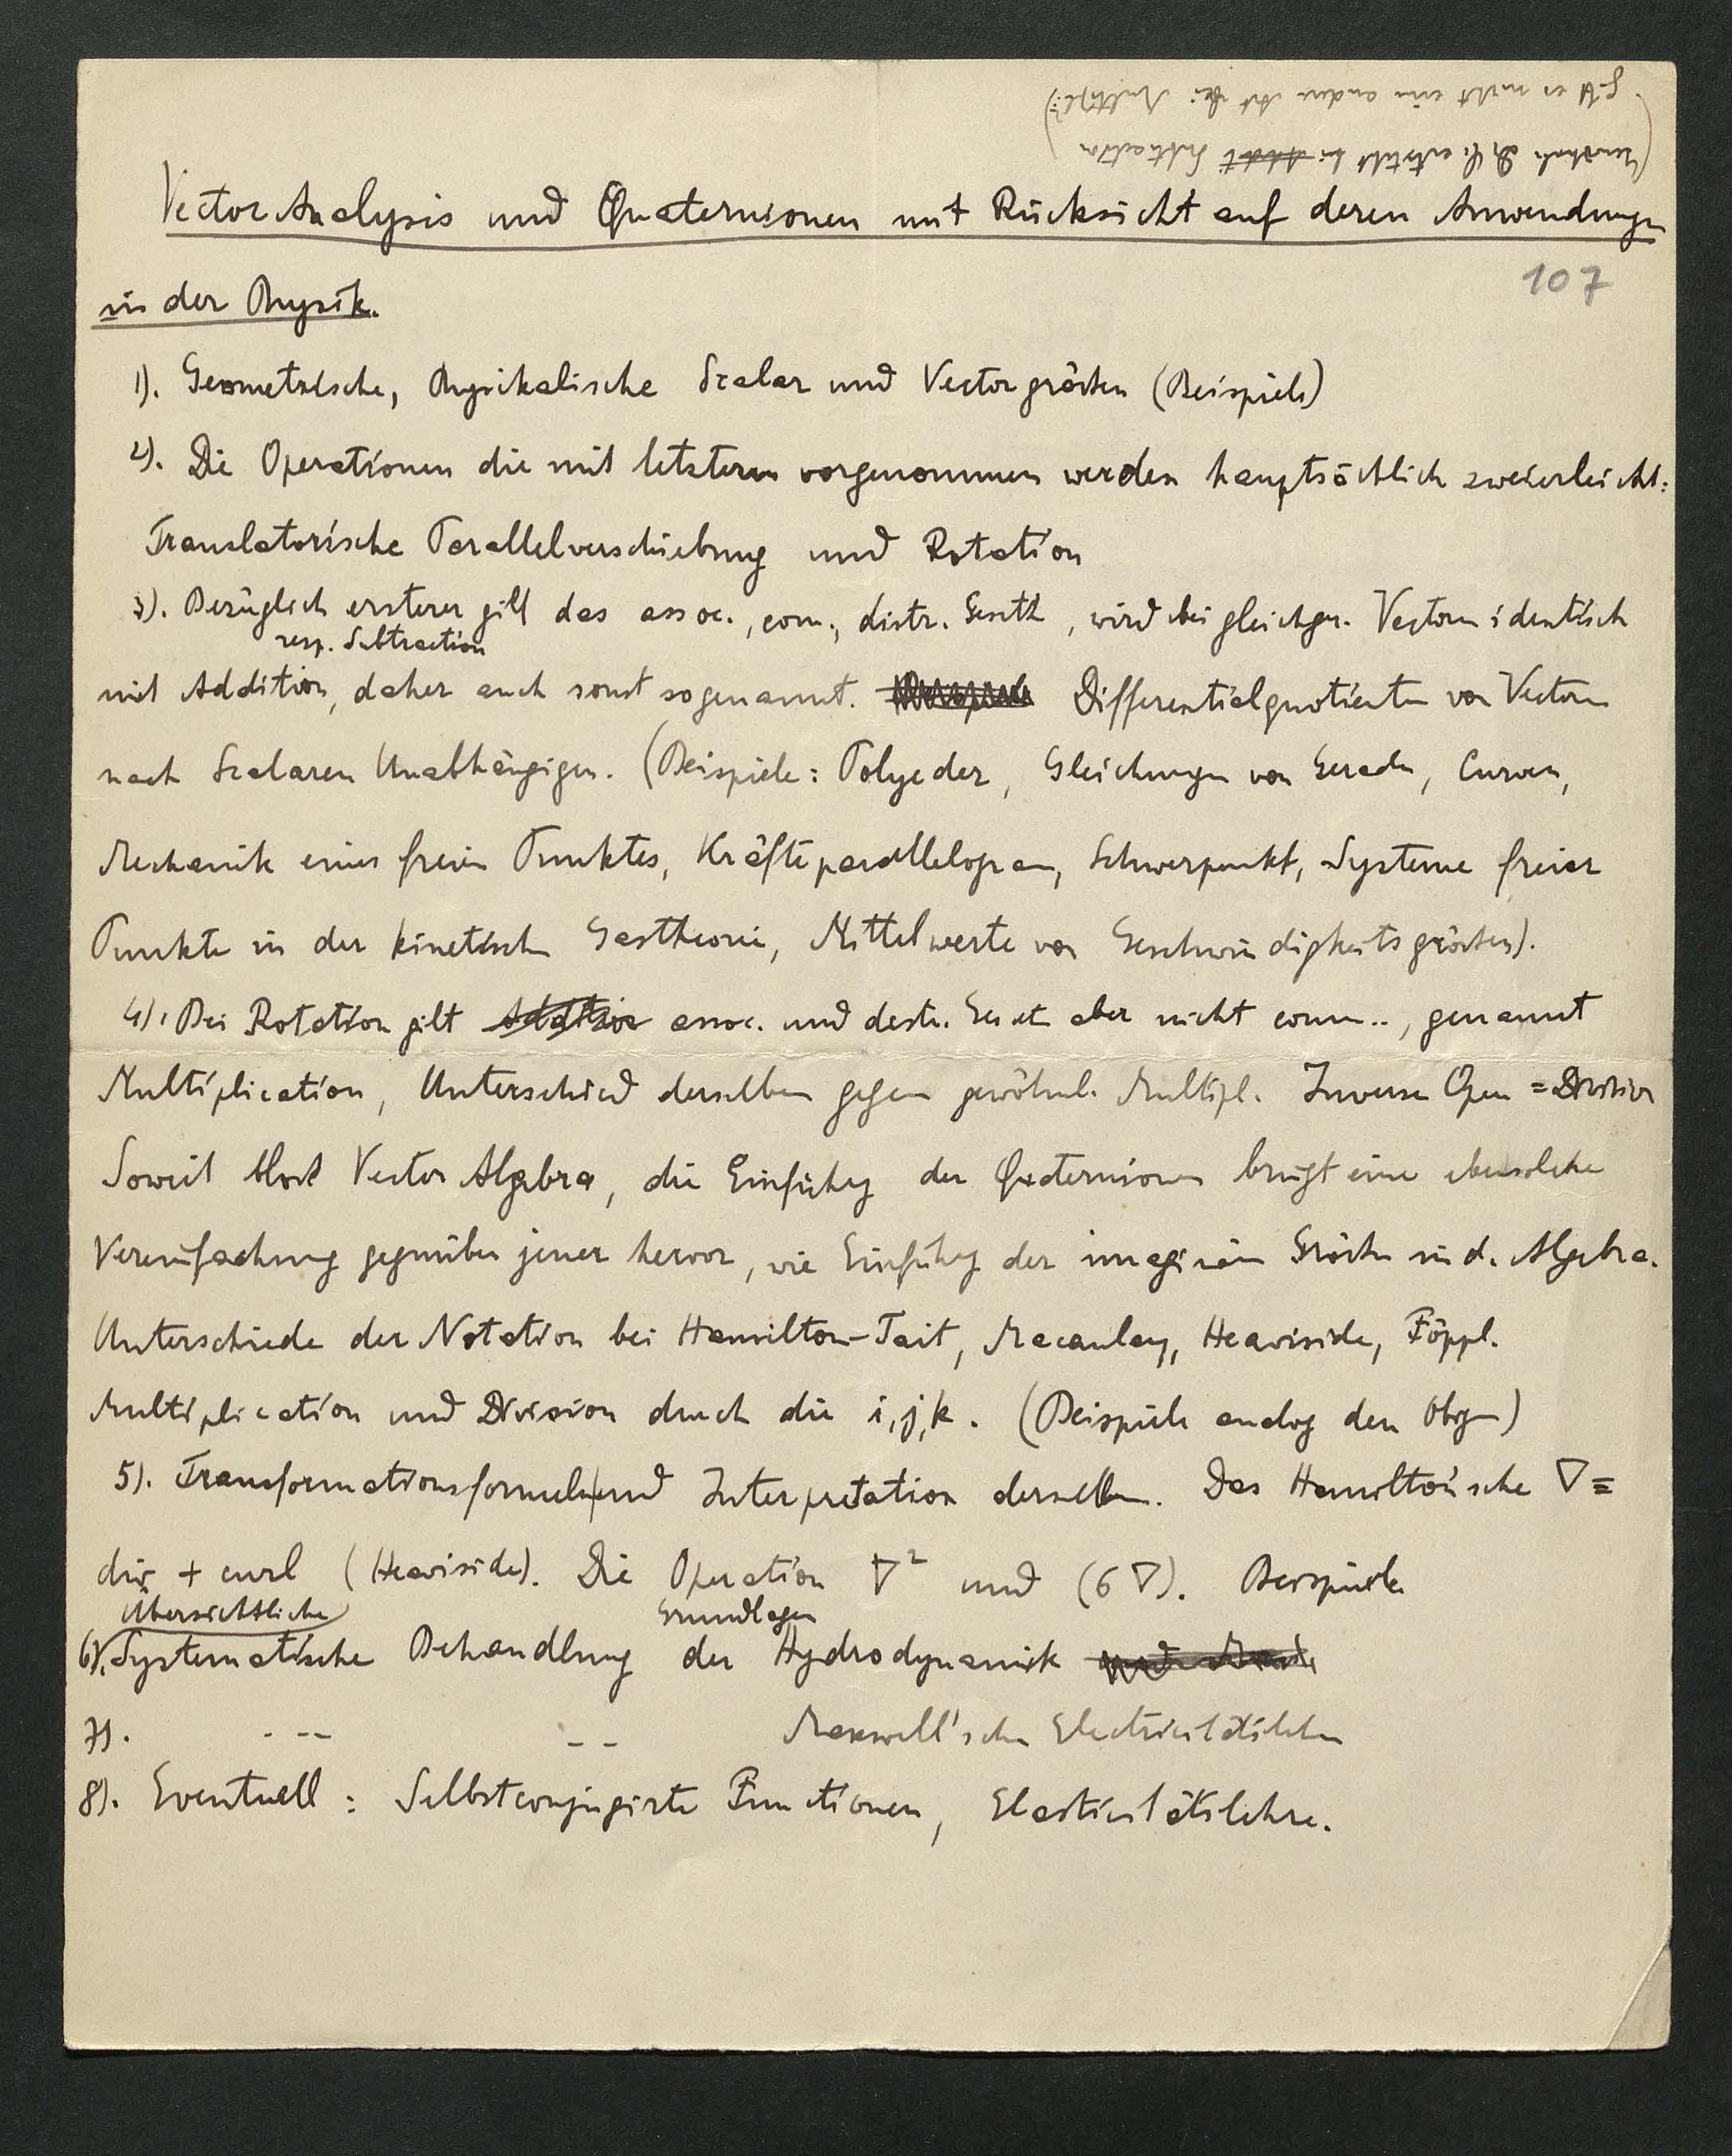 Vector Analysis und Quaternionen mit Rücksicht auf deren Anwendungen
107
in der Physik.
1). Geometrische, Physikalische Scalar und Vectorgrössen (Beispiele)
2). Die Operationen die mit letzteren vorgenommen werden hauptsächlich zweierlei Art:
Translatorische Parallelverschiebung und Rotation
3). Bezüglich ersterer gilt das assoc., com., distr. Gesetz, wird bei gleichger. Vectoren identisch
resp. Subtraction
mit Addition, daher auch sonst so genannt. Differentialquotienten von Vectoren
nach Scalaren Unabhängigen. (Beispiele: Polyeder, Gleichungen von Geraden, Curven,
Mechanik eines freien Punktes, Kräfteparallelogram, Schwerpunkt, Systeme freier
Punkte in der kinetischen Gastheorie, Mittelwerte von Geschwindigkeitsgrössen).
4). Bei Rotation gilt Addition assoc. und distr. Gesetz aber nicht comm.., genannt
Multiplication, Unterschied derselben gegen gewöhnl. Multipl. Inverse Oper = Division
Soweit bloss Vector Algebra, die Einführung der Quaternionen bringt eine ebensolche
Vereinfachung gegenüber jener hervor, wie Einführung der imaginären Grössen in d. Algebra.
Unterschiede der Notation bei Hamilton-Tait, Macaulay, Heaviside, Föppl.
Multiplication und Division durch die i, j, k. (Beispiele analog den obigen)
5). Transformationsformeln und Interpretation derselben. Das Hamilton'sche ∇ =
div + curl (Heaviside). Die Operation ∇² und (σ∇). Beispiele
Übersichtliche Grundlagen
6). Systematische Behandlung der Hydrodynamik
7). - -- - - Maxwell'schen Electricitätslehre
8). Eventuell: Selbstconjugirte Functionen, Elasticitätslehre.
(  entsteht bei Addit Subtraction
gibt es nicht eine andere Art bei Multipl.?)